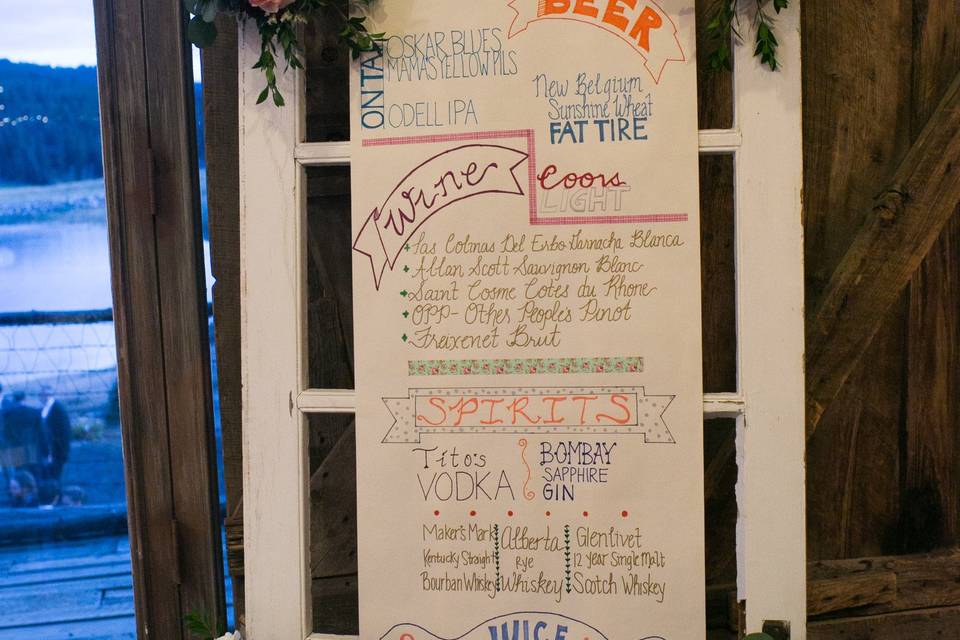 BEER
ON TAP
OSKAR BLUES
MAMAS YELLOW PILS
ODELL IPA
New Belgium
Sunshine Wheat
FAT TIRE
Coors
LIGHT
Wine
Las Colinas Del Ebro Garnacha Blanca
Allan Scott Sauvignon Blanc
Saint Cosme Cotes du Rhone
OPP- Other Peoples Pinot
Freixenet Brut
SPIRITS
Tito's
VODKA
BOMBAY
SAPPHIRE
GIN
Maker's Mark
Kentucky Straight
Bourbon Whiskey
Alberta
Rye
Whiskey
Glenlivet
12 Year Single Malt
Scotch Whiskey
JUICE